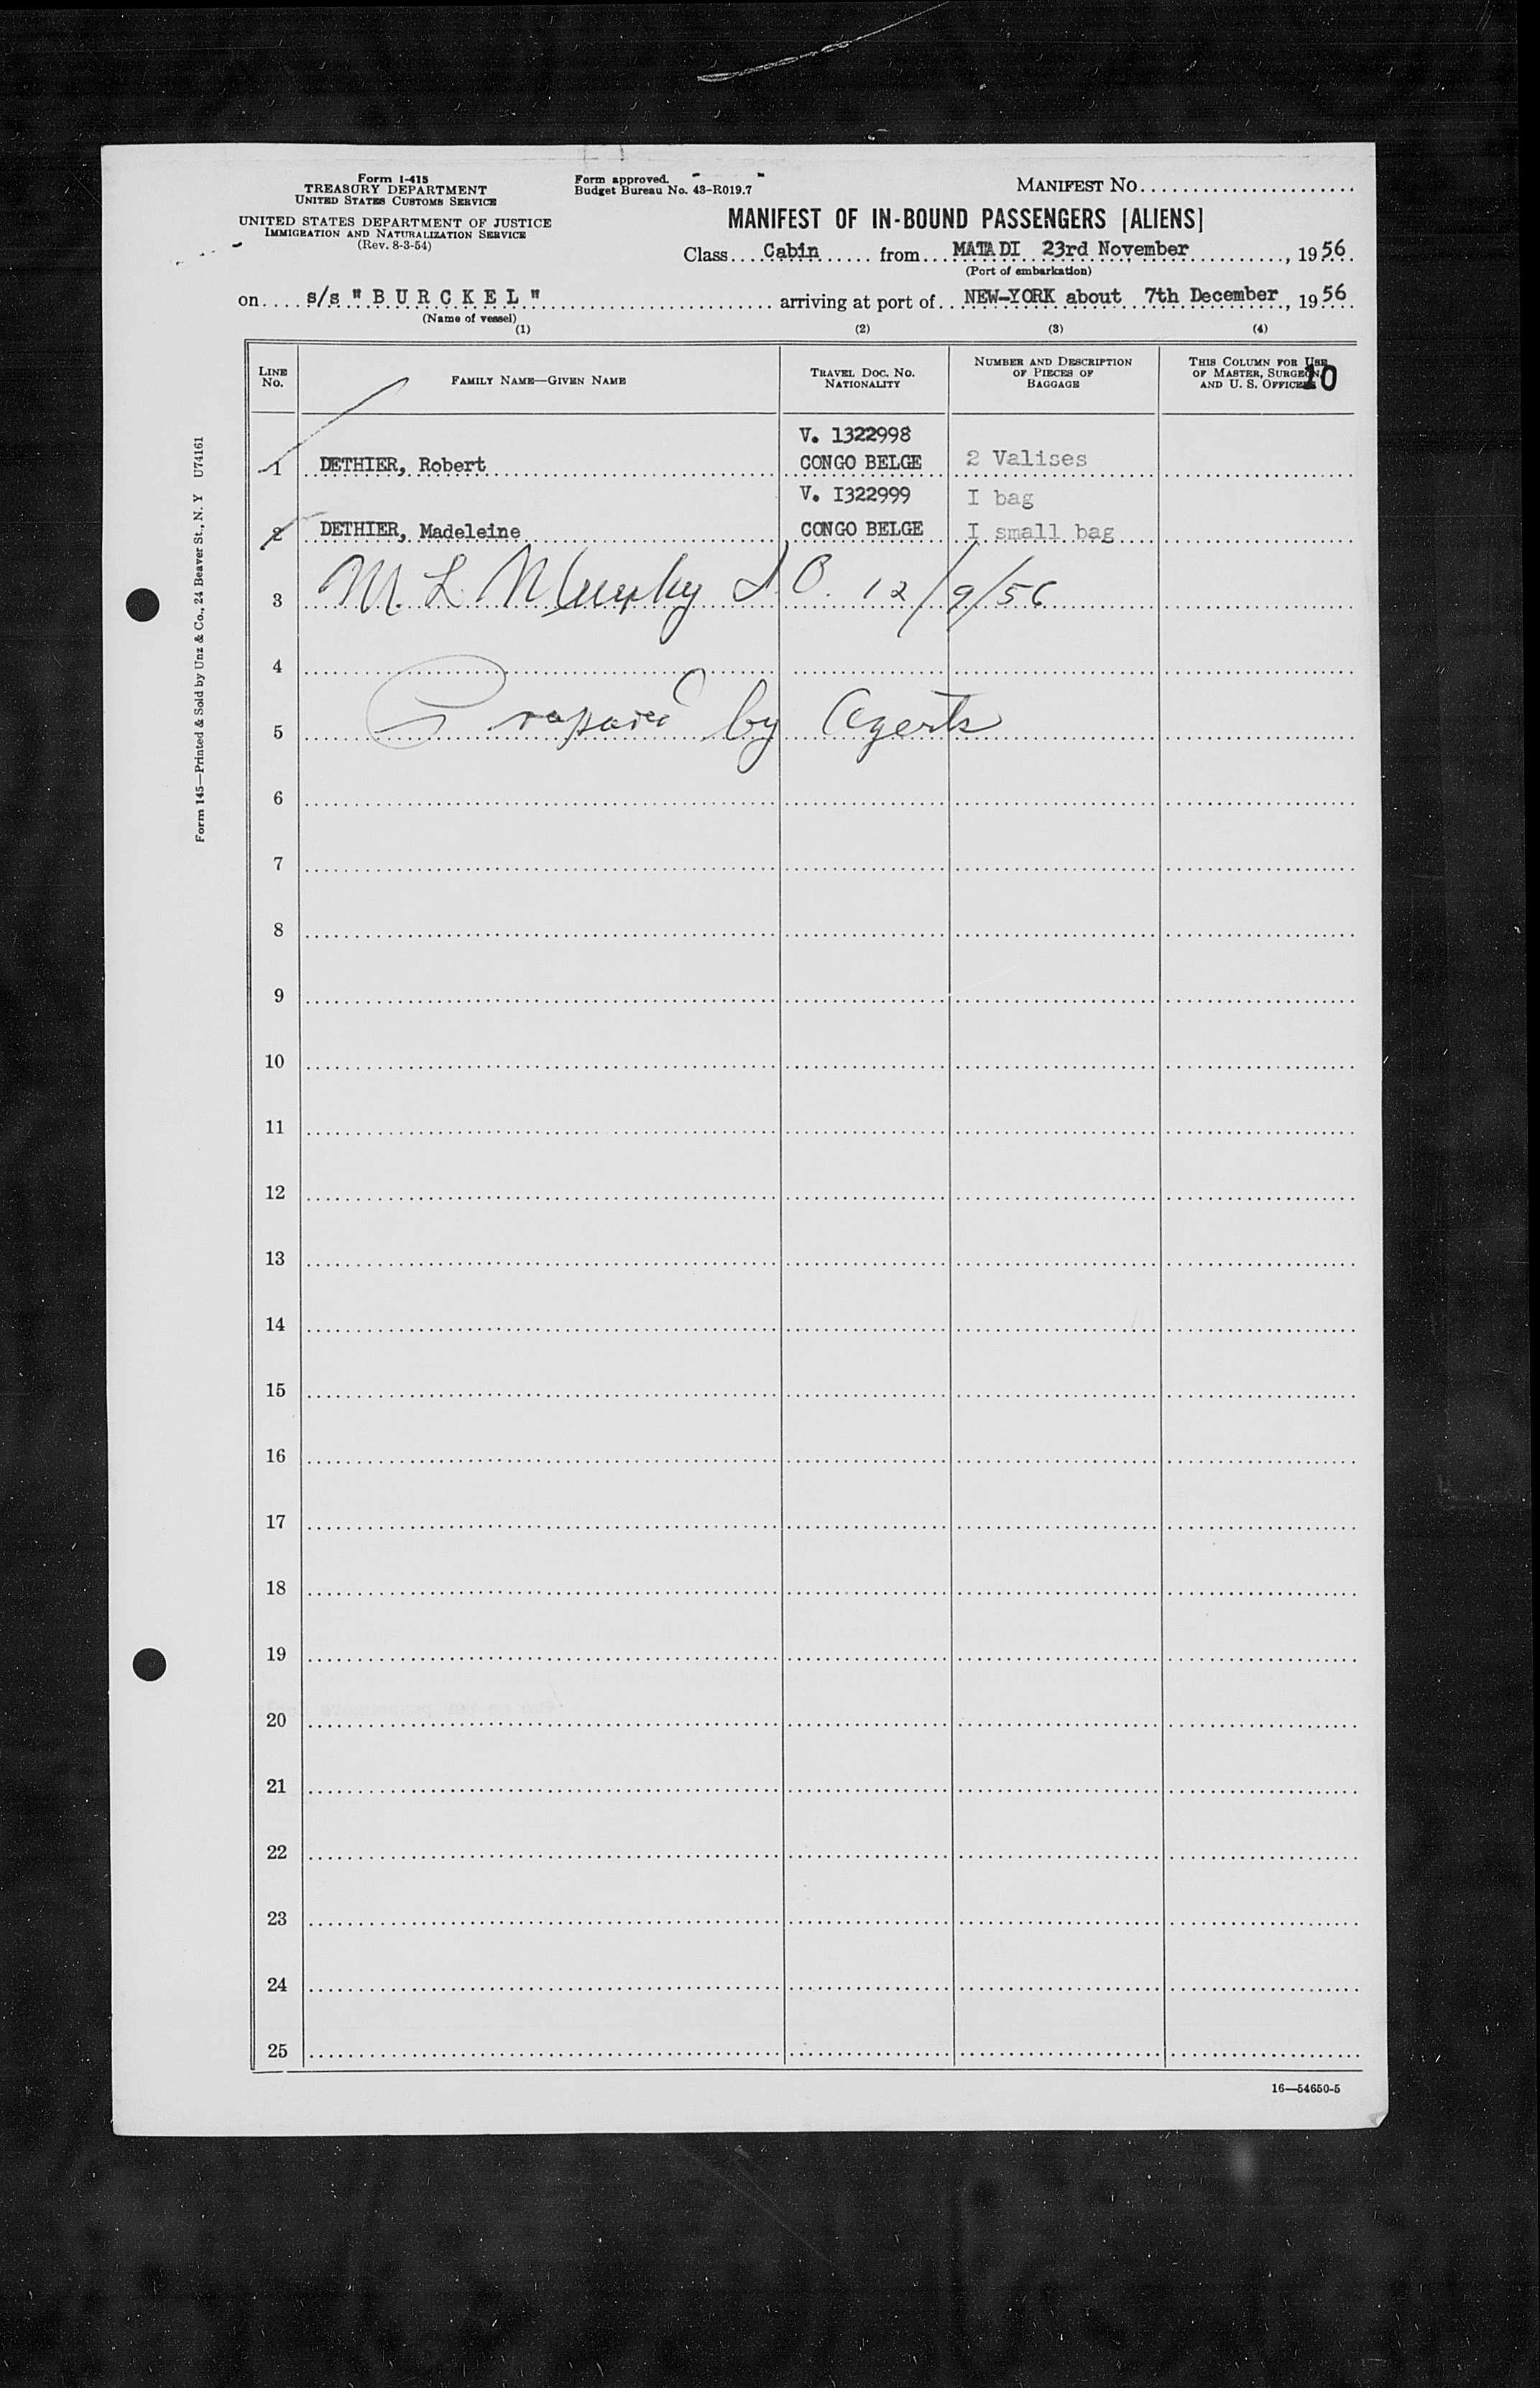 Form I-415
TREASURY DEPARTMENT
UNITED STATES CUSTOMS SERVICE
UNITED STATES DEPARTMENT OF JUSTICE
IMMIGRATION AND NATURALIZATION SERVICE
(Rev. 8-3-54)
Form approved.
Budget Bureau No. 43-R019.7
MANIFEST NO.
MANIFEST OF IN-BOUND PASSENGERS [ALIENS]
Class Cabin from MATADI 23rd November, 1956.
(Port of embarkation)
on s/s "BURCKEL" arriving at port of NEW-YORK about 7th December, 1956
(Name of vessel)
(1) (2) (3) (4)
LINE NO.
FAMILY NAME—GIVEN NAME
TRAVEL DOC. NO. NATIONALITY
NUMBER AND DESCRIPTION OF PIECES OF BAGGAGE
THIS COLUMN FOR USE OF MASTER, SURGEON, AND U. S. OFFICERS
10
V. 1322998
1 DETHIER, Robert CONGO BELGE 2 Valises
V. I322999 I bag
2 DETHIER, Madeleine CONGO BELGE I small bag
3 M. L. Murphy I.O. 12/9/56
4
5 Prepared by Agents
6
7
8
9
10
11
12
13
14
15
16
17
18
19
20
21
22
23
24
25
16—54650-5
Form 145—Printed & Sold by Unz & Co., 24 Beaver St., N. Y U74161